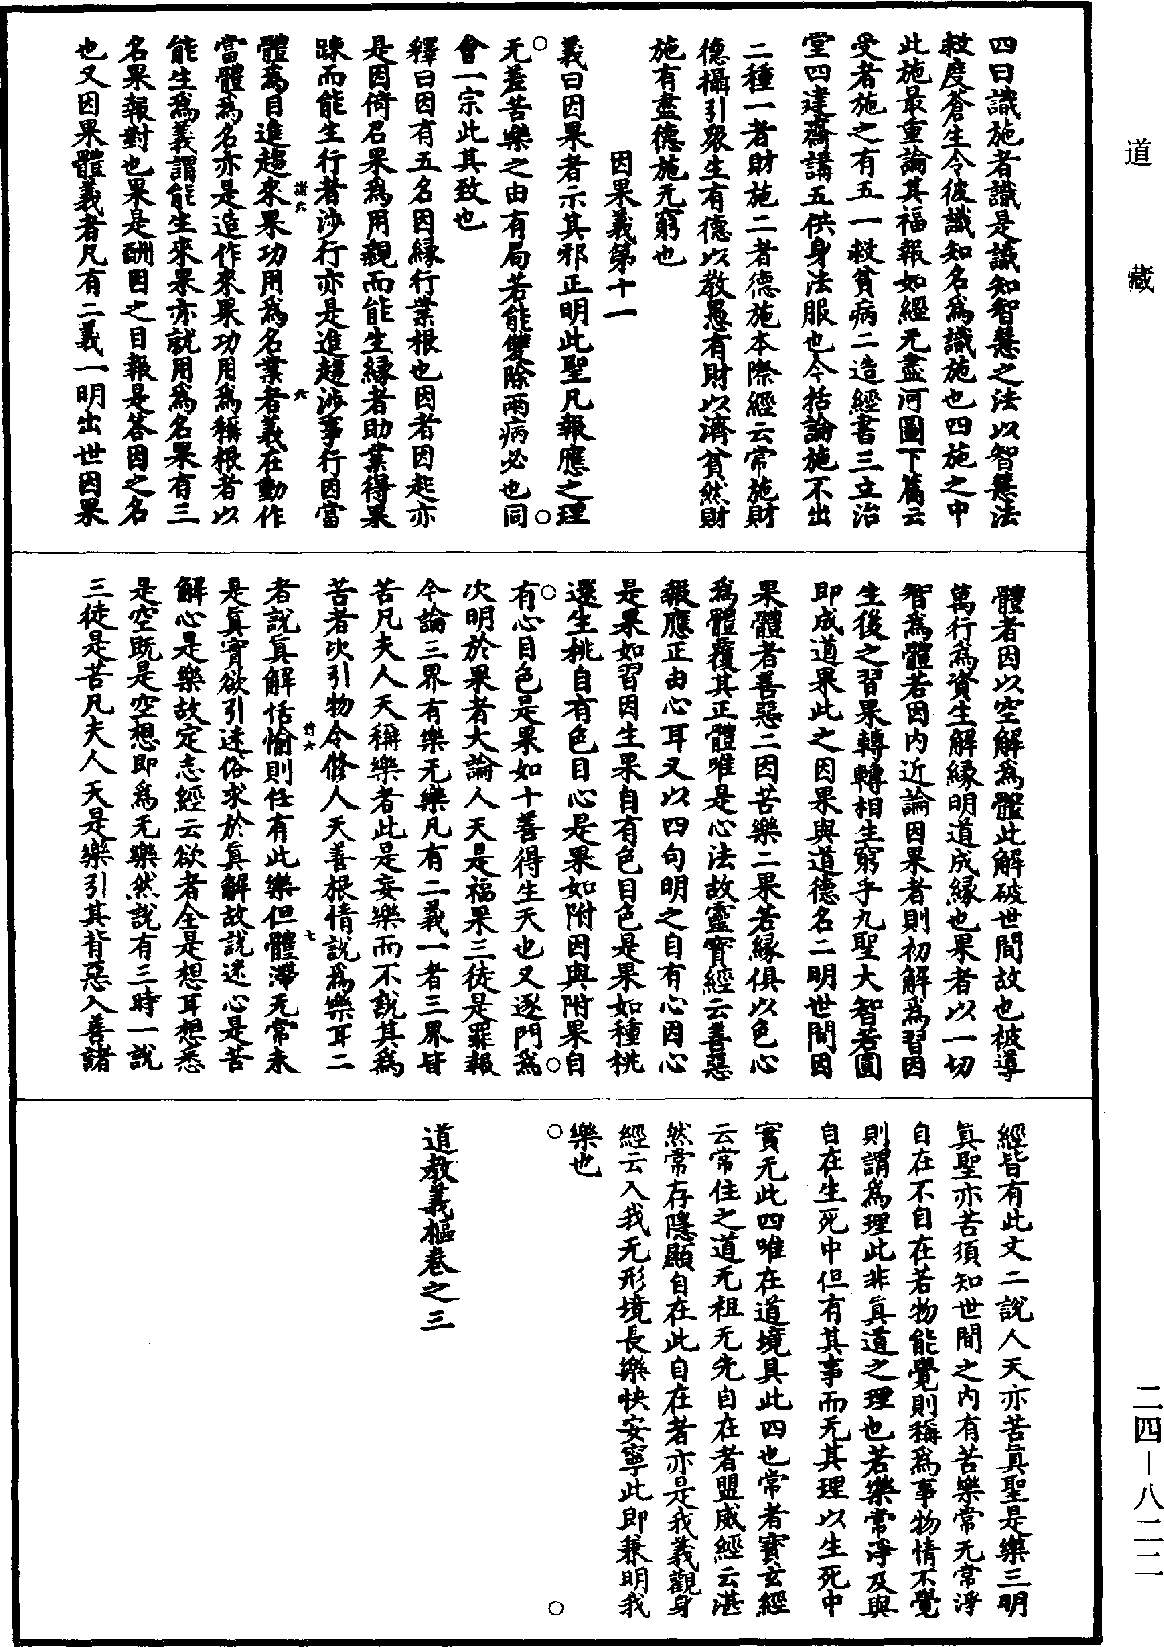 道藏
四曰識施者識是識知智慧之法以智慧法
救度蒼生令彼識知名為識施也四施之中
此施最重論其福報如經无盡河圖下篇云
受者施之有五一救貧病二造經書三立治
堂四建齋講五供身法服也今括論施不出
二種一者財施二者德施本際經云常施財
德攝引眾生有德以教愚有財以濟貧然財
施有盡德施无窮也
因果義第十一
義曰因果者示其邪正明此聖凡報應之理
无差苦樂之由有局若能雙除兩病必也同
會一宗此其致也
釋曰因有五名因緣行業根也因者因起亦
是因倚名果為用親而能生緣者助業得果
踈而能生行者涉行亦是進趨涉事行因當
體為目進趨來果功用為名業者義在動作
當體為名亦是造作來果功用為稱根者以
能生為義謂能生來果亦就用為名果有三
名果報對也果是酬因之目報是荅因之名
也又因果體義者凡有二義一明出世因果
體者因以空解為體此解破世間故也被導
萬行為資生解緣明道成緣也果者以一切
智為體若因内近論因果者則初解為習因
生後之習果轉轉相生窮乎九聖大智若圓
即成道果此之因果與道德名二明世間因
果體者善惡二因苦樂二果若緣俱以色心
為體覆其正體唯是心法故靈寶經云善惡
報應正由心耳又以四句明之自有心因心
是果如習因生果自有色目色是果如種桃
還生桃自有色目心是果如附因與附果自
有心目色是果如十善得生天也又逐門為
次明於果者大論人天是福果三徒是罪報
今論三界有樂无樂凡有二義一者三界皆
苦凡夫人天稱樂者此是妄樂而不說其為
苦者次引物令修人天善根情說為樂耳二
者說真解恬愉則任有此樂但體滯无常未
是真實欲引迷俗求於真解故說迷心是苦
解心是樂故定志經云欲者全是想耳想悉
是空既是空想即為无樂然說有三時一說
三徒是苦凡夫人天是樂引其背惡入善諸
經皆有此文二說人天亦苦真聖是樂三明
真聖亦苦須知世間之内有苦樂常无常淨
自在不自在若物能覺則稱為事物情不覺
則謂為理此非真道之理也若樂常淨及與
自在生死中但有其事而无其理以生死中
實无此四唯在道境具此四也常者寶玄經
云常住之道无祖无先自在者盟威經云湛
然常存隱顯自在此自在者亦是我義觀身
經云入我无形境長樂快安寧此即兼明我
樂也
道教義樞卷之三
二四—八二二